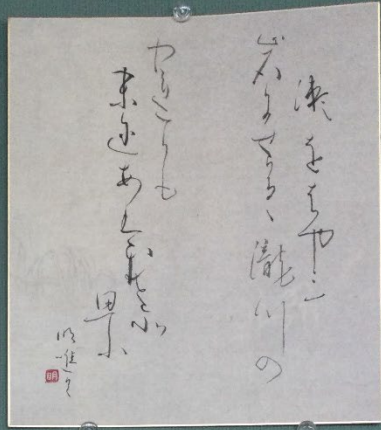 瀬をはやミ
岩にせかるゝ瀧川の
われても
末にあはむとぞ
思ふ